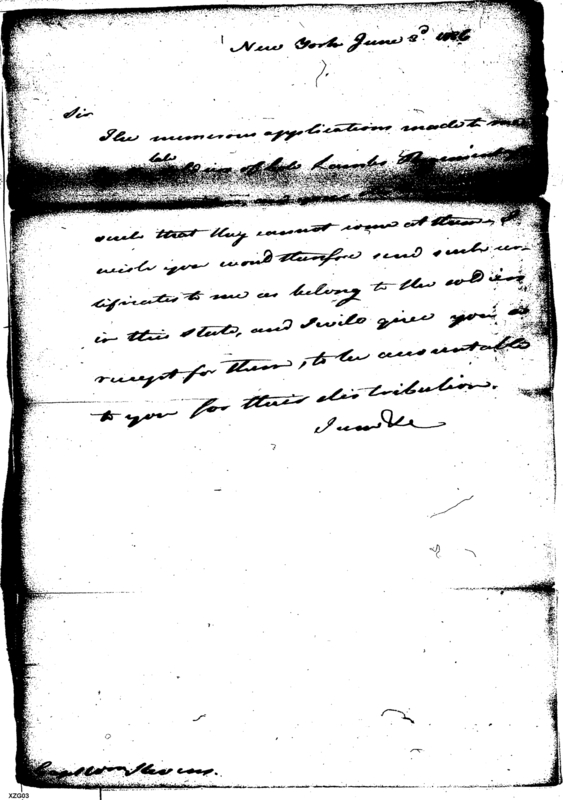 New York June 3d 1786
Sir
The numerous applications made to me
late
of Col. Lambs Regiment
and
such that they cannot come at them, I
wish you would therefore send such cer-
tificates to me as belong to the soldiers
in this State, and I will give you a
receipt for them, to be accountable
to you for their distribution.
I am &c
Capt Wm Stevens.
XZG03